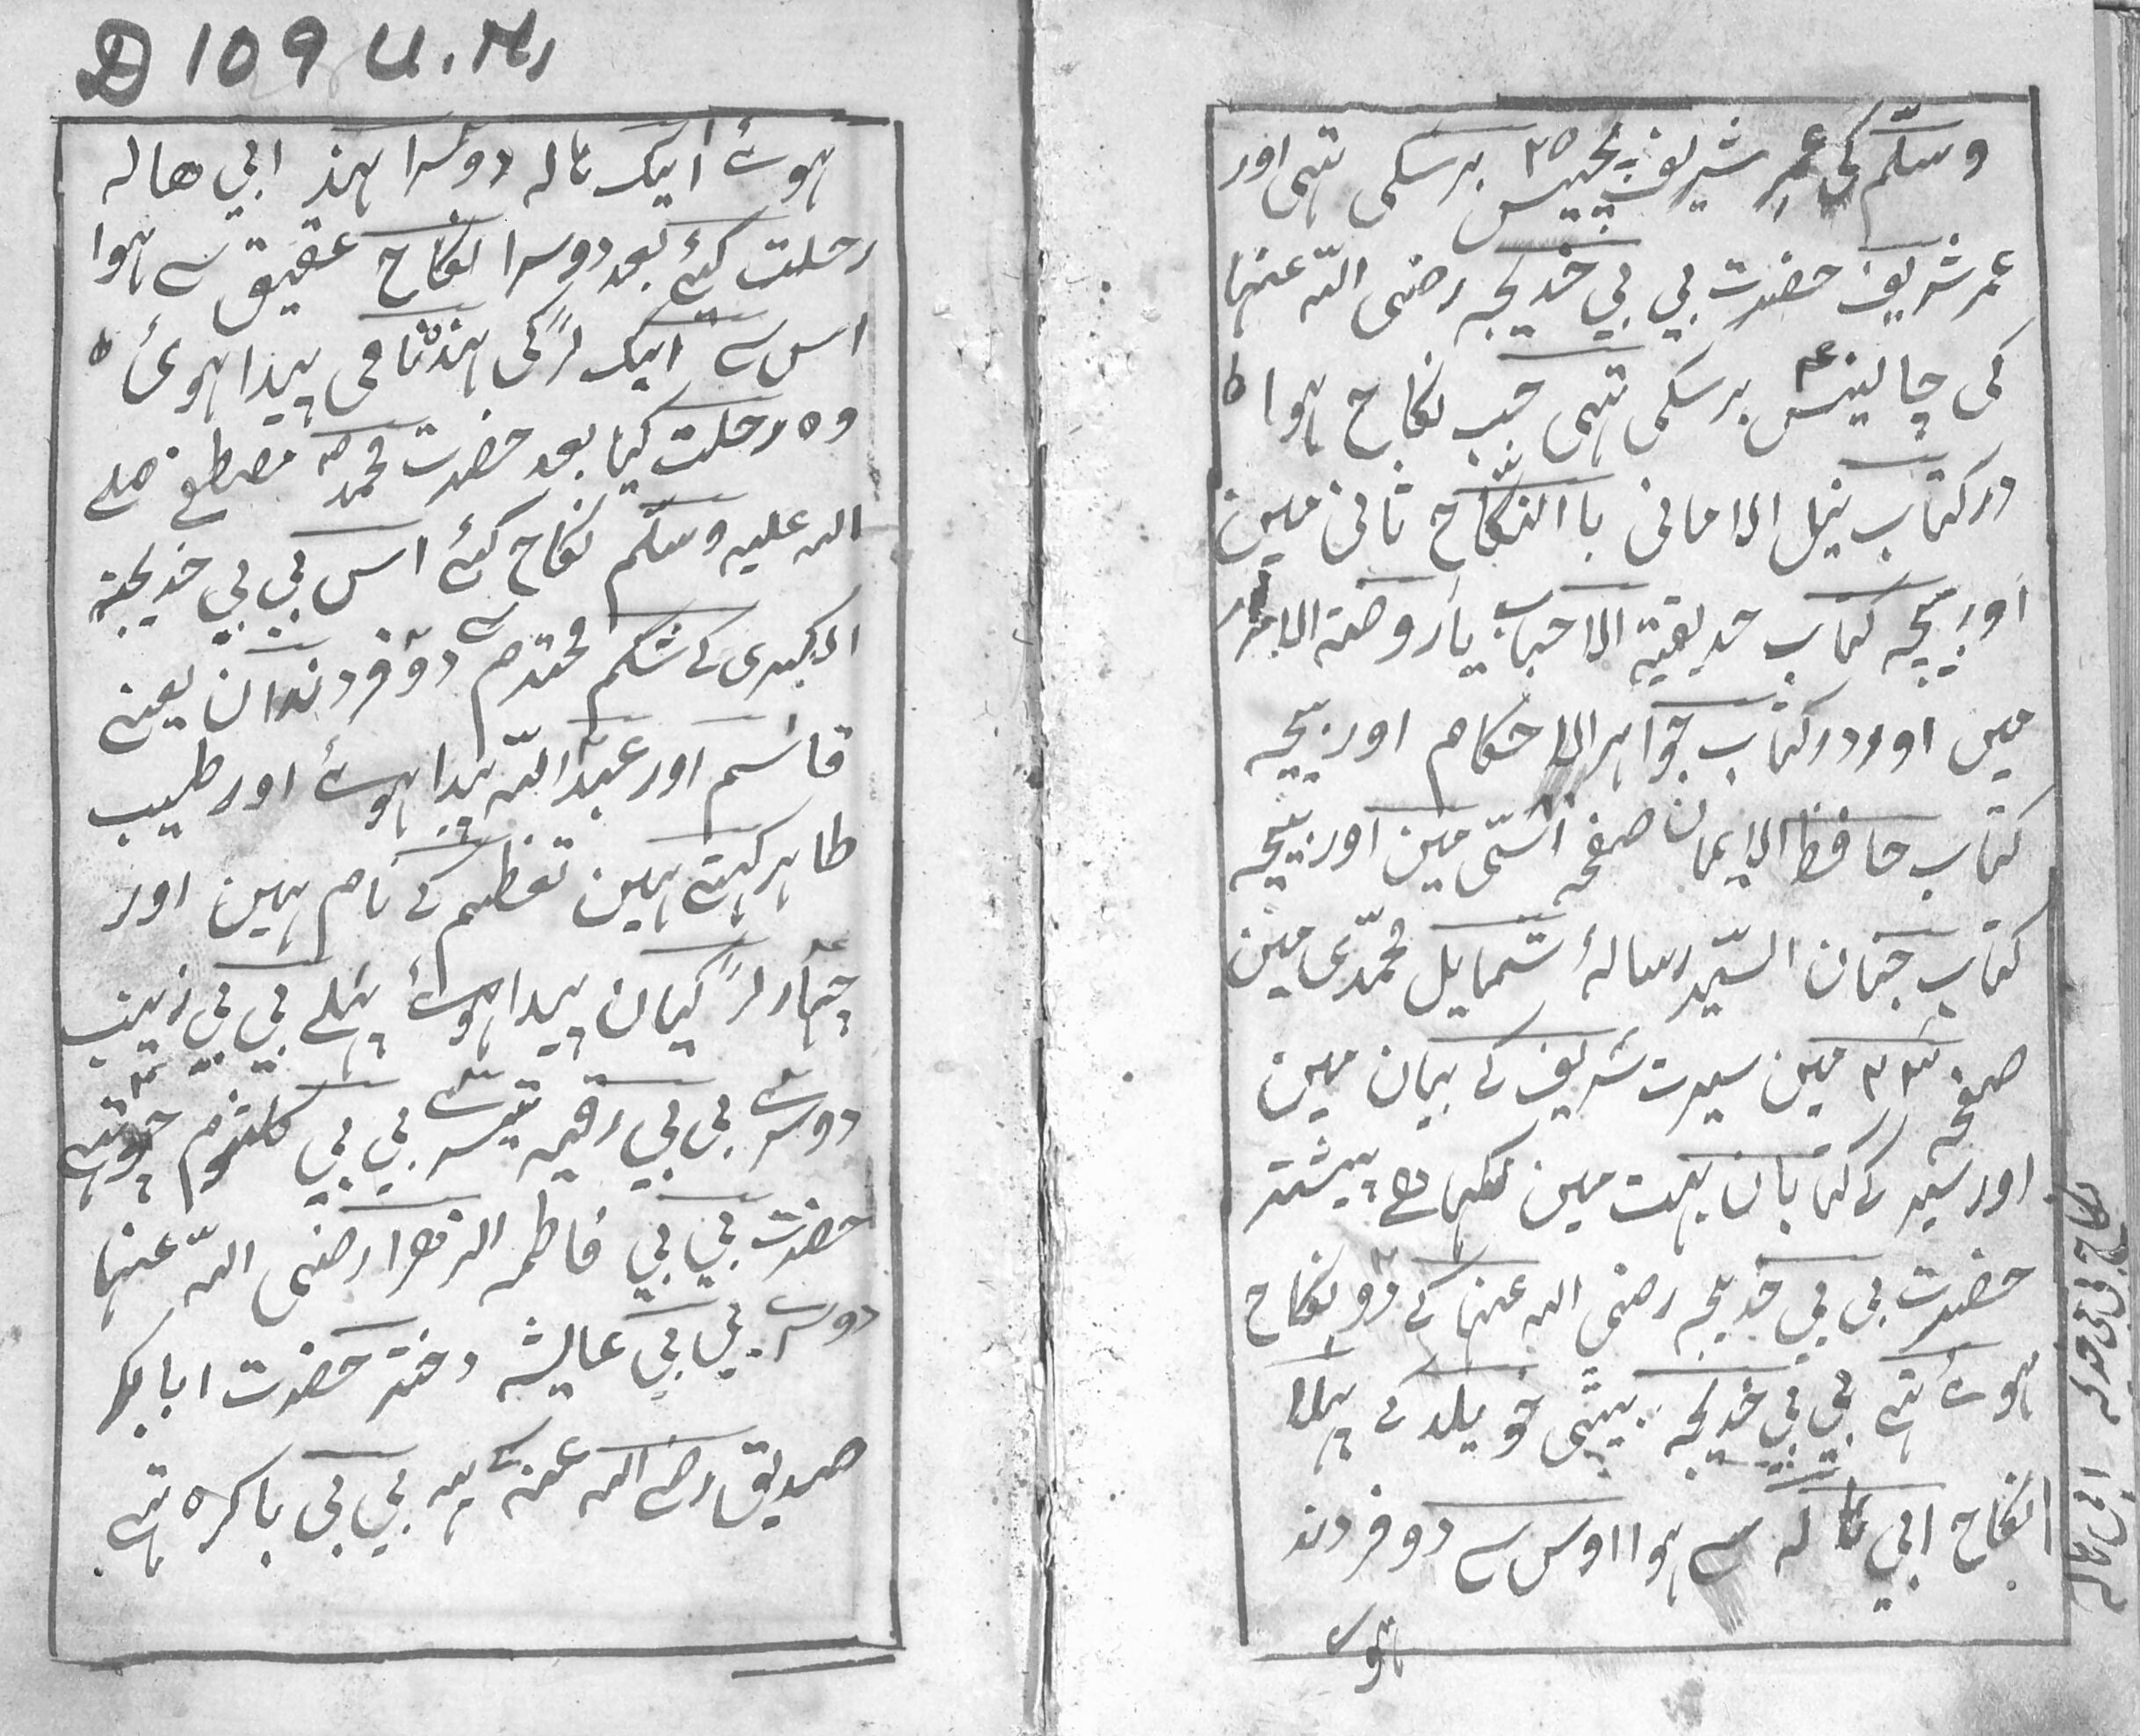 وسلّم کی عمر شریف پچیس ۲۵ برسکی تہی اور
عمر شریف حضرت بی بی خدیجہ رضی اللّہ عنہا
کی چالیس برسکی تہی جب نکاح ہوا ٥
در کتاب نیل الامانی باالنّکاح ثانی مین
اور بیچہ کتاب حدیقیۃ الاحباب یا روضۃ
مین اور در کتاب جواہر الاحکام اور بیچہ
کتاب حافظ الایمان صفحہ اسّی مین اور بیچہ
کتاب جنان السّیر رسالۂ شمایل محمّدی مین
صفحہ مین سیرت شریف کے بیان مین
اور سیر کے کتابان بہت مین لکہا ہے پیشتر
حضرت بی بی خدیجہ رضی اللہ عنہا کے دو نکاح
ہوئے تہے بی بی خدیجہ بیٹی خویلد کے پہلا
نکاح ابی ہالہ سے ہوا اوس سے دو فرزند
ہوے
نکاح بی بی خدیجہ ابی ہالہ
D 109 U. Ms
ہوئے ایک ہالہ دوسرا ہند ابی ھالہ
رحلت کیۓ بعد دوسرا نکاح عقیق سے ہوا
اس سے ایک لڑکی ہندہ نامی پیدا ہوئ ٥
وہ رحلت کیا بعد حضرت محمد مصطفے صلے
اللہ علیہ وسلّم نکاح کئے اس بی بی خدیجۃ
الکبری کے شکم محترم سے دو فرزندان یعنے
قاسم اور عبد اللّہ پیدا ہوئے اور طیب
طاہر کہتے ہین تعظیم کے نام ہین اور
چہار لڑکیان پیدا ہوئے پہلے بی بی زینب
دوسرے بی بی رقیہ تیسرے بی بی کلثوم چوتہے
حضرت بی بی فاطمہ الزھرا رضی اللّہ عنہا
دوسرے بی بی عایشہ دختر حضرت ابابکر
صدیق رضے اللہ عنہ کے یہ بی بی باکرہ تہے